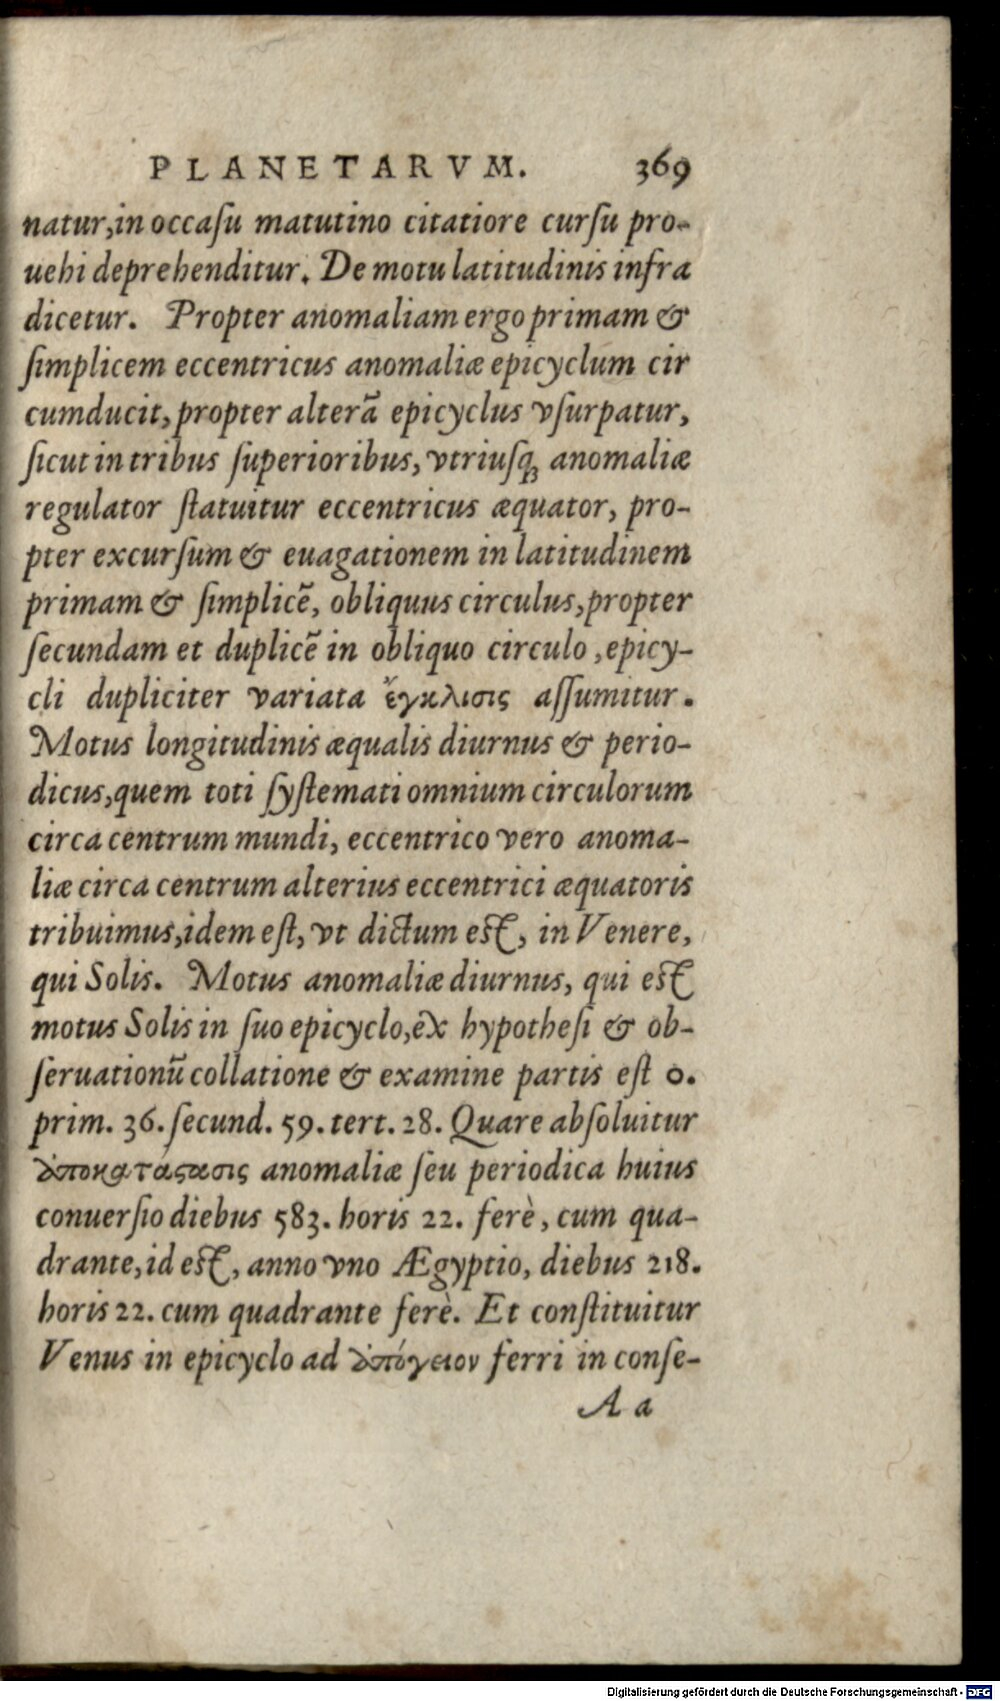 PLANETARVM. 369
natur,in occaſu matutino citatiore curſu pro-
uehi deprehenditur. De motu latitudinis infra
dicetur. Propter anomaliam ergo primam &
ſimplicem eccentricus anomaliæ epicyclum cir
cumducit, propter alterā epicyclus vſurpatur,
ſicut in tribus ſuperioribus, vtriuſq; anomaliæ
regulator ſtatuitur eccentricus æquator, pro-
pter excurſum & euagationem in latitudinem
primam & ſimplicē, obliquus circulus, propter
ſecundam et duplicē in obliquo circulo, epicy-
cli dupliciter variata ἔγκλισις aſſumitur.
Motus longitudinis æqualis diurnus & perio-
dicus, quem toti ſyſtemati omnium circulorum
circa centrum mundi, eccentrico vero anoma-
liæ circa centrum alterius eccentrici æquatoris
tribuimus, idem eſt, vt dictum eſt, in Venere,
qui Solis. Motus anomaliæ diurnus, qui eſt
motus Solis in ſuo epicyclo, ex hypotheſi & ob-
ſeruationū collatione & examine partis eſt 0.
prim. 36. ſecund. 59. tert. 28. Quare abſoluitur
ἀποκατάϛασις anomaliæ ſeu periodica huius
conuerſio diebus 583. horis 22. ferè, cum qua-
drante, id eſt, anno vno Ægyptio, diebus 218.
horis 22. cum quadrante ferè. Et conſtituitur
Venus in epicyclo ad ἀπόγειον ferri in conſe-
A a
Digitalisierung gefördert durch die Deutsche Forschungsgemeinschaft - DFG